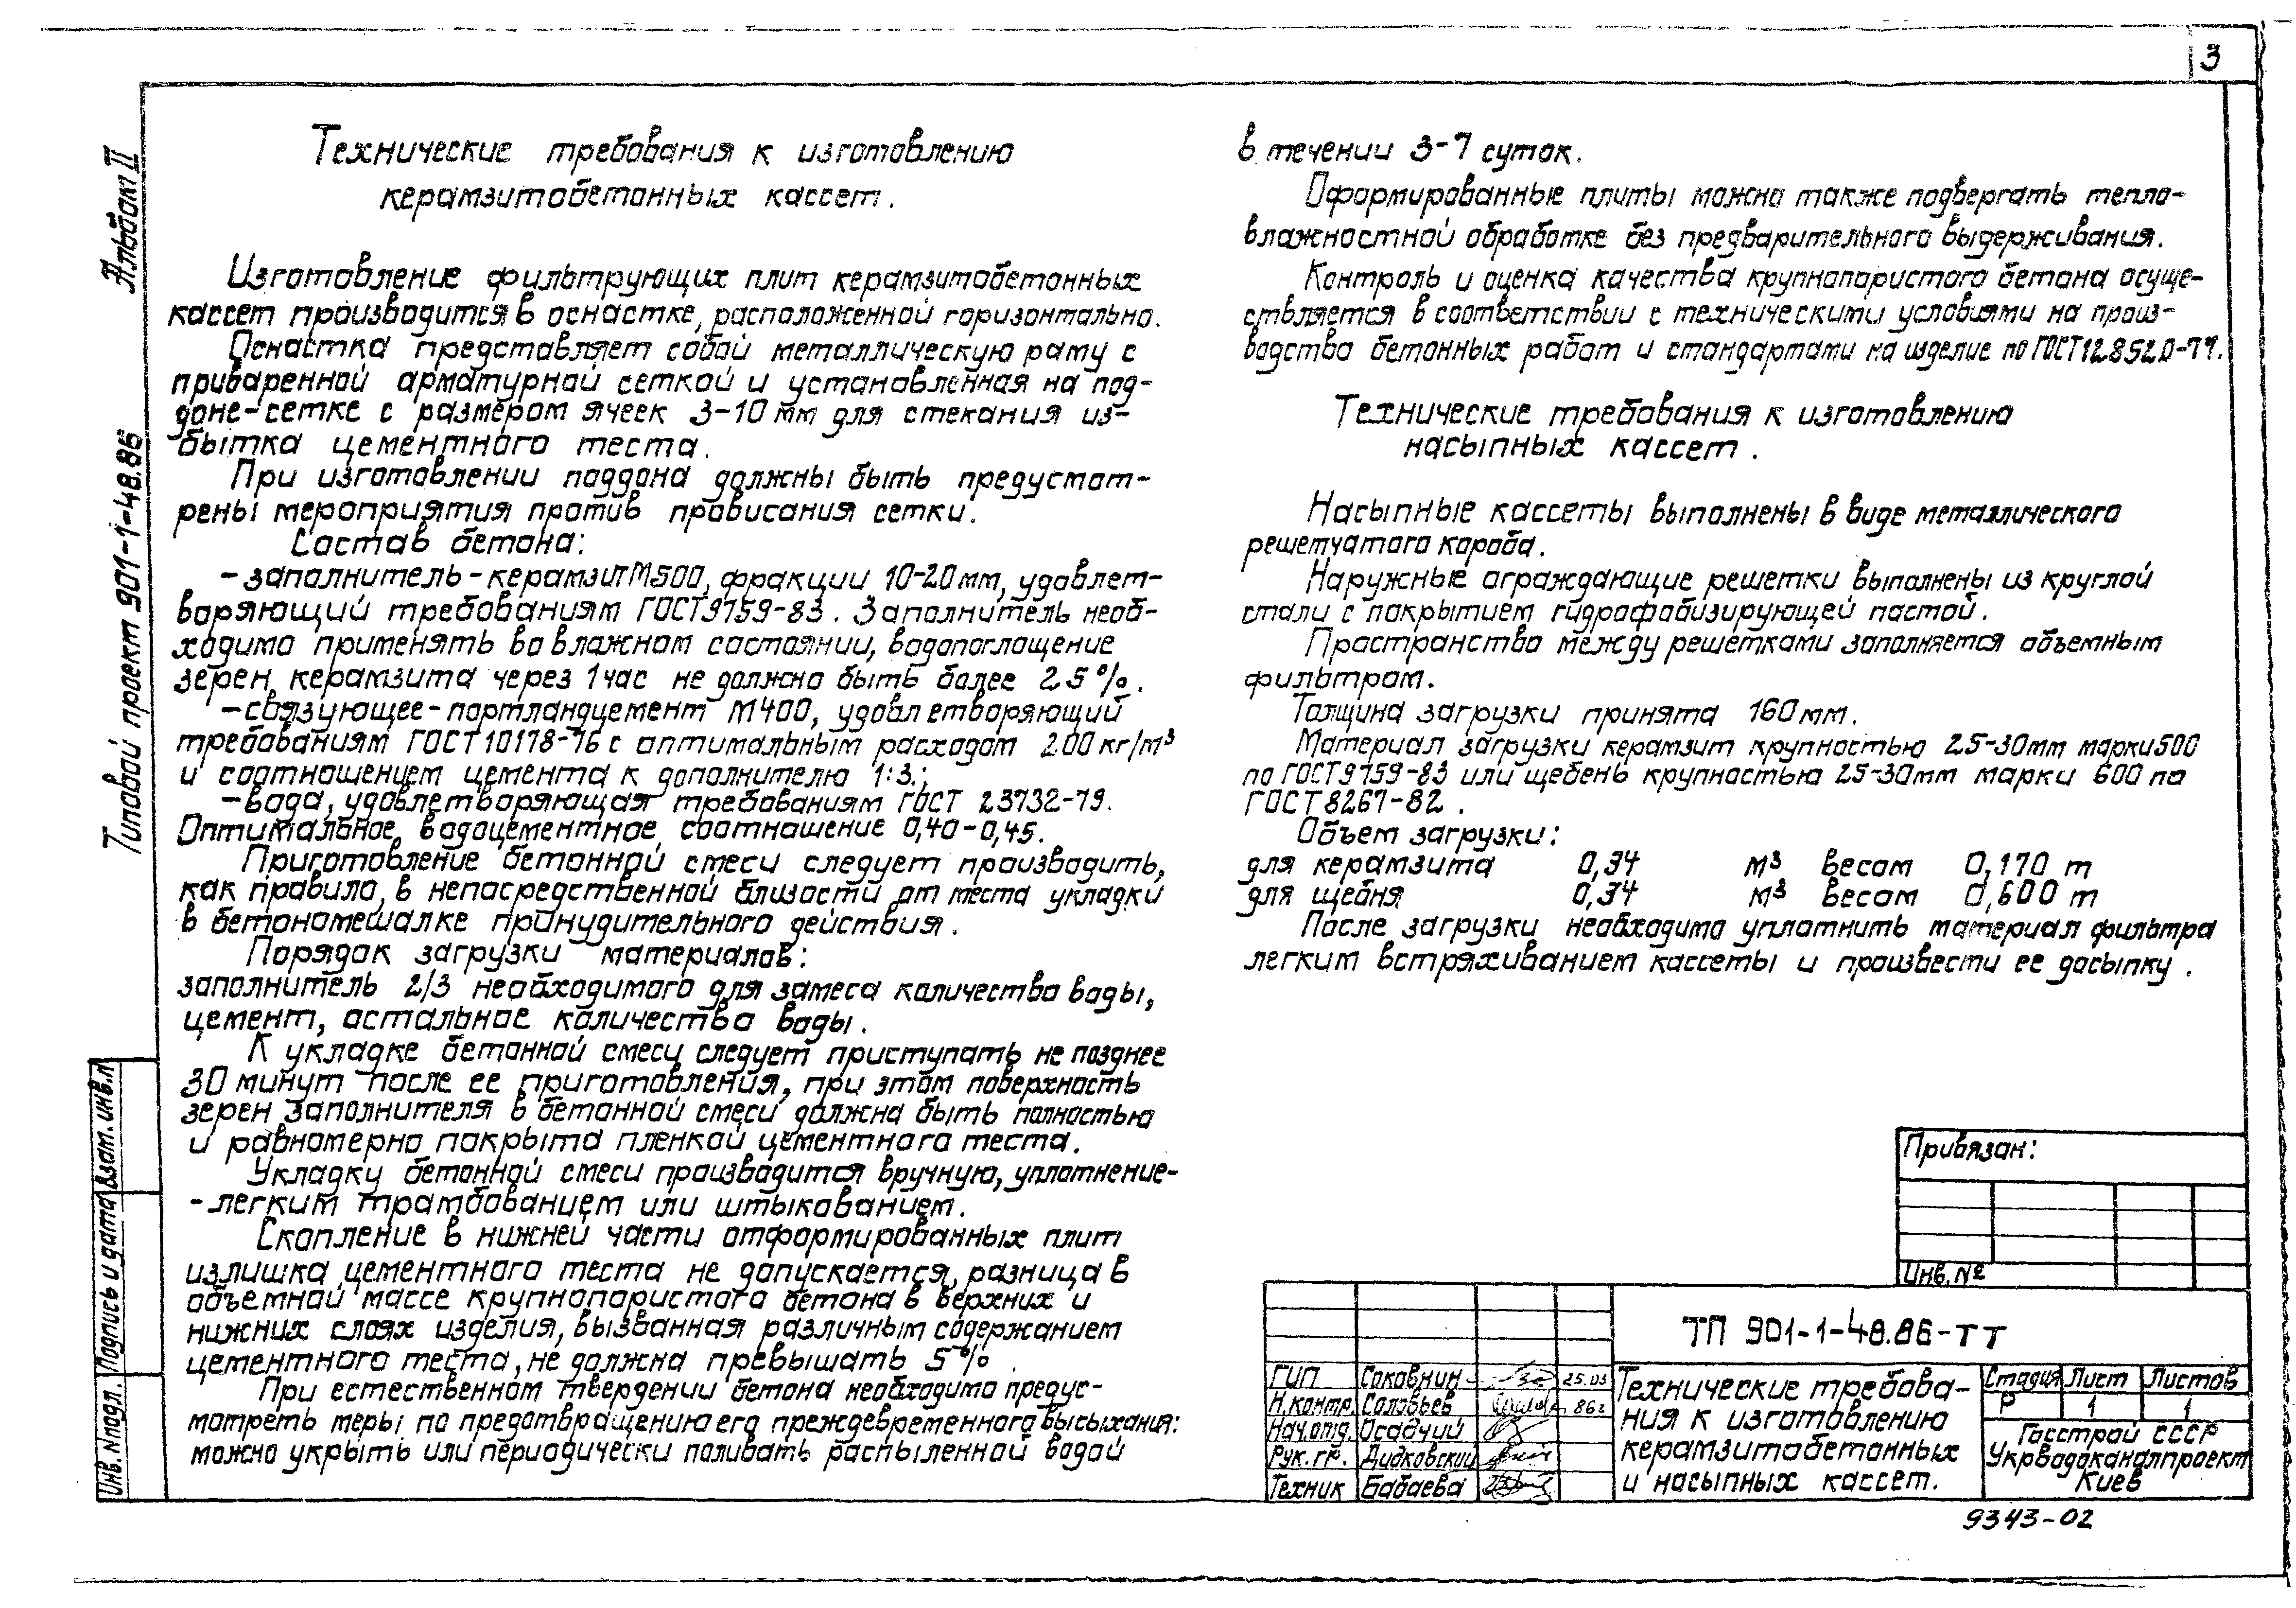 3
Альбом II
Типовой проект 901-1-48.86
Технические требования к изготовлению
керамзитобетонных кассет.
Изготовление фильтрующих плит керамзитобетонных
кассет производится в оснастке, расположенной горизонтально.
Оснастка представляет собой металлическую раму с
приваренной арматурной сеткой и установленная на под-
доне-сетке с размером ячеек 3-10 мм для стекания из-
бытка цементного теста.
При изготовлении поддона должны быть предусмот-
рены мероприятия против провисания сетки.
Состав бетона:
-заполнитель-керамзит М500, фракции 10-20мм, удовлет-
воряющий требованиям ГОСТ 9759-83. Заполнитель необ-
ходимо применять во влажном состоянии, водопоглощение
зерен керамзита через 1 час не должно быть более 25%.
-связующее-портландцемент М400, удовлетворяющий
требованиям ГОСТ 10178-76 с оптимальным расходом 200 кг/м³
и соотношением цемента к дополнителю 1:3.;
-вода, удовлетворяющая требованиям ГОСТ 23732-79.
Оптимальное водоцементное соотношение 0,40-0,45.
Приготовление бетонной смеси следует производить,
как правило, в непосредственной близости от места укладки
в бетономешалке принудительного действия.
Порядок загрузки материалов:
заполнитель 2/3 необходимого для замеса количества воды,
цемент, остальное количество воды.
К укладке бетонной смеси следует приступать не позднее
30 минут после ее приготовления, при этом поверхность
зерен заполнителя в бетонной смеси должна быть полностью
и равномерно покрыта пленкой цементного теста.
Укладку бетонной смеси производится вручную, уплотнение-
-легким трамбованием или штыкованием.
Скопление в нижней части отформированных плит
излишка цементного теста не допускается, разница в
объемной массе крупнопористого бетона в верхних и
нижних слоях изделия, вызванная различным содержанием
цементного теста, не должна превышать 5%.
При естественном твердении бетона необходимо предус-
мотреть меры по предотвращению его преждевременного высыхания:
можно укрыть или периодически поливать распыленной водой
в течении 3-7 суток.
Оформированные плиты можно также подвергать тепло-
влажностной обработке без предварительного выдерживания.
Контроль и оценка качества крупнопористого бетона осуще-
ствляется в соответствии с техническими условиями на произ-
водство бетонных работ и стандартами на изделие по ГОСТ 12.852.0-77.
Технические требования к изготовлению
насыпных кассет.
Насыпные кассеты выполнены в виде металлического
решетчатого короба.
Наружные ограждающие решетки выполнены из круглой
стали с покрытием гидрофобизирующей пастой.
Пространство между решетками заполняется объемным
фильтром.
Толщина загрузки принята 160мм.
Материал загрузки керамзит крупностью 25-30мм марки 500
по ГОСТ 9759-83 или щебень крупностью 25-30мм марки 600 по
ГОСТ 8267-82.
Объем загрузки:
для керамзита 0,34 м³ весом 0,170 т
для щебня 0,34 м³ весом 0,600 т
После загрузки необходимо уплотнить материал фильтра
легким встряхиванием кассеты и произвести ее досыпку.
Привязан:
Инв. №
ТП 901-1-48.86-ТТ
ГИП Саковнин 25.03
Н.контр. Соловьев 86г
Нач.отд. Осадчий
Рук.гр. Дидковский
Техник Бабаева
Технические требова-
ния к изготовлению
керамзитобетонных
и насыпных кассет.
Стадия Лист Листов
Р 1 1
Госстрой СССР
Укрводоканалпроект
Киев
Инв.№подл. Подпись и дата Взам.инв.№
9343-02